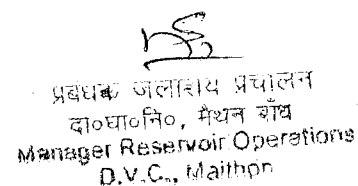 प्रबंधक जलाशय प्रचालन
दा०घा०नि०, मैथन बाँध
Manager Reservoir Operations
D.V.C., Maithon